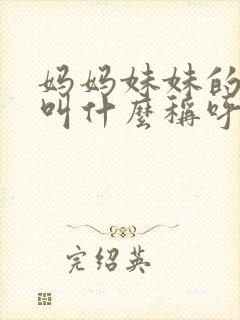 妈妈妹妹的
叫什麼稱呼
完绍英